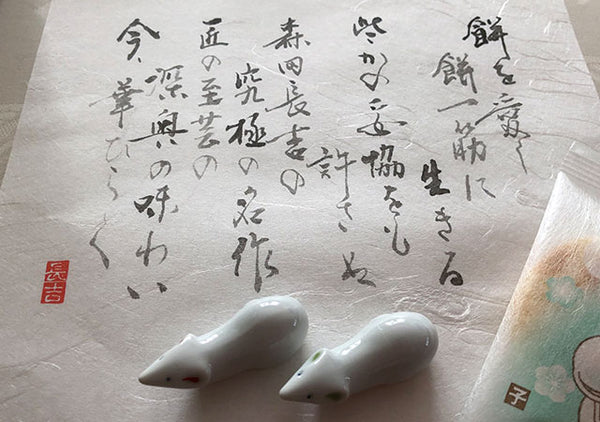 餅を愛し
餅一筋に
生きる
些かの妥協をも
許さぬ
森田長吉の
究極の名作
匠の至芸の
深奥の味わい
今、華ひらく
長吉
子